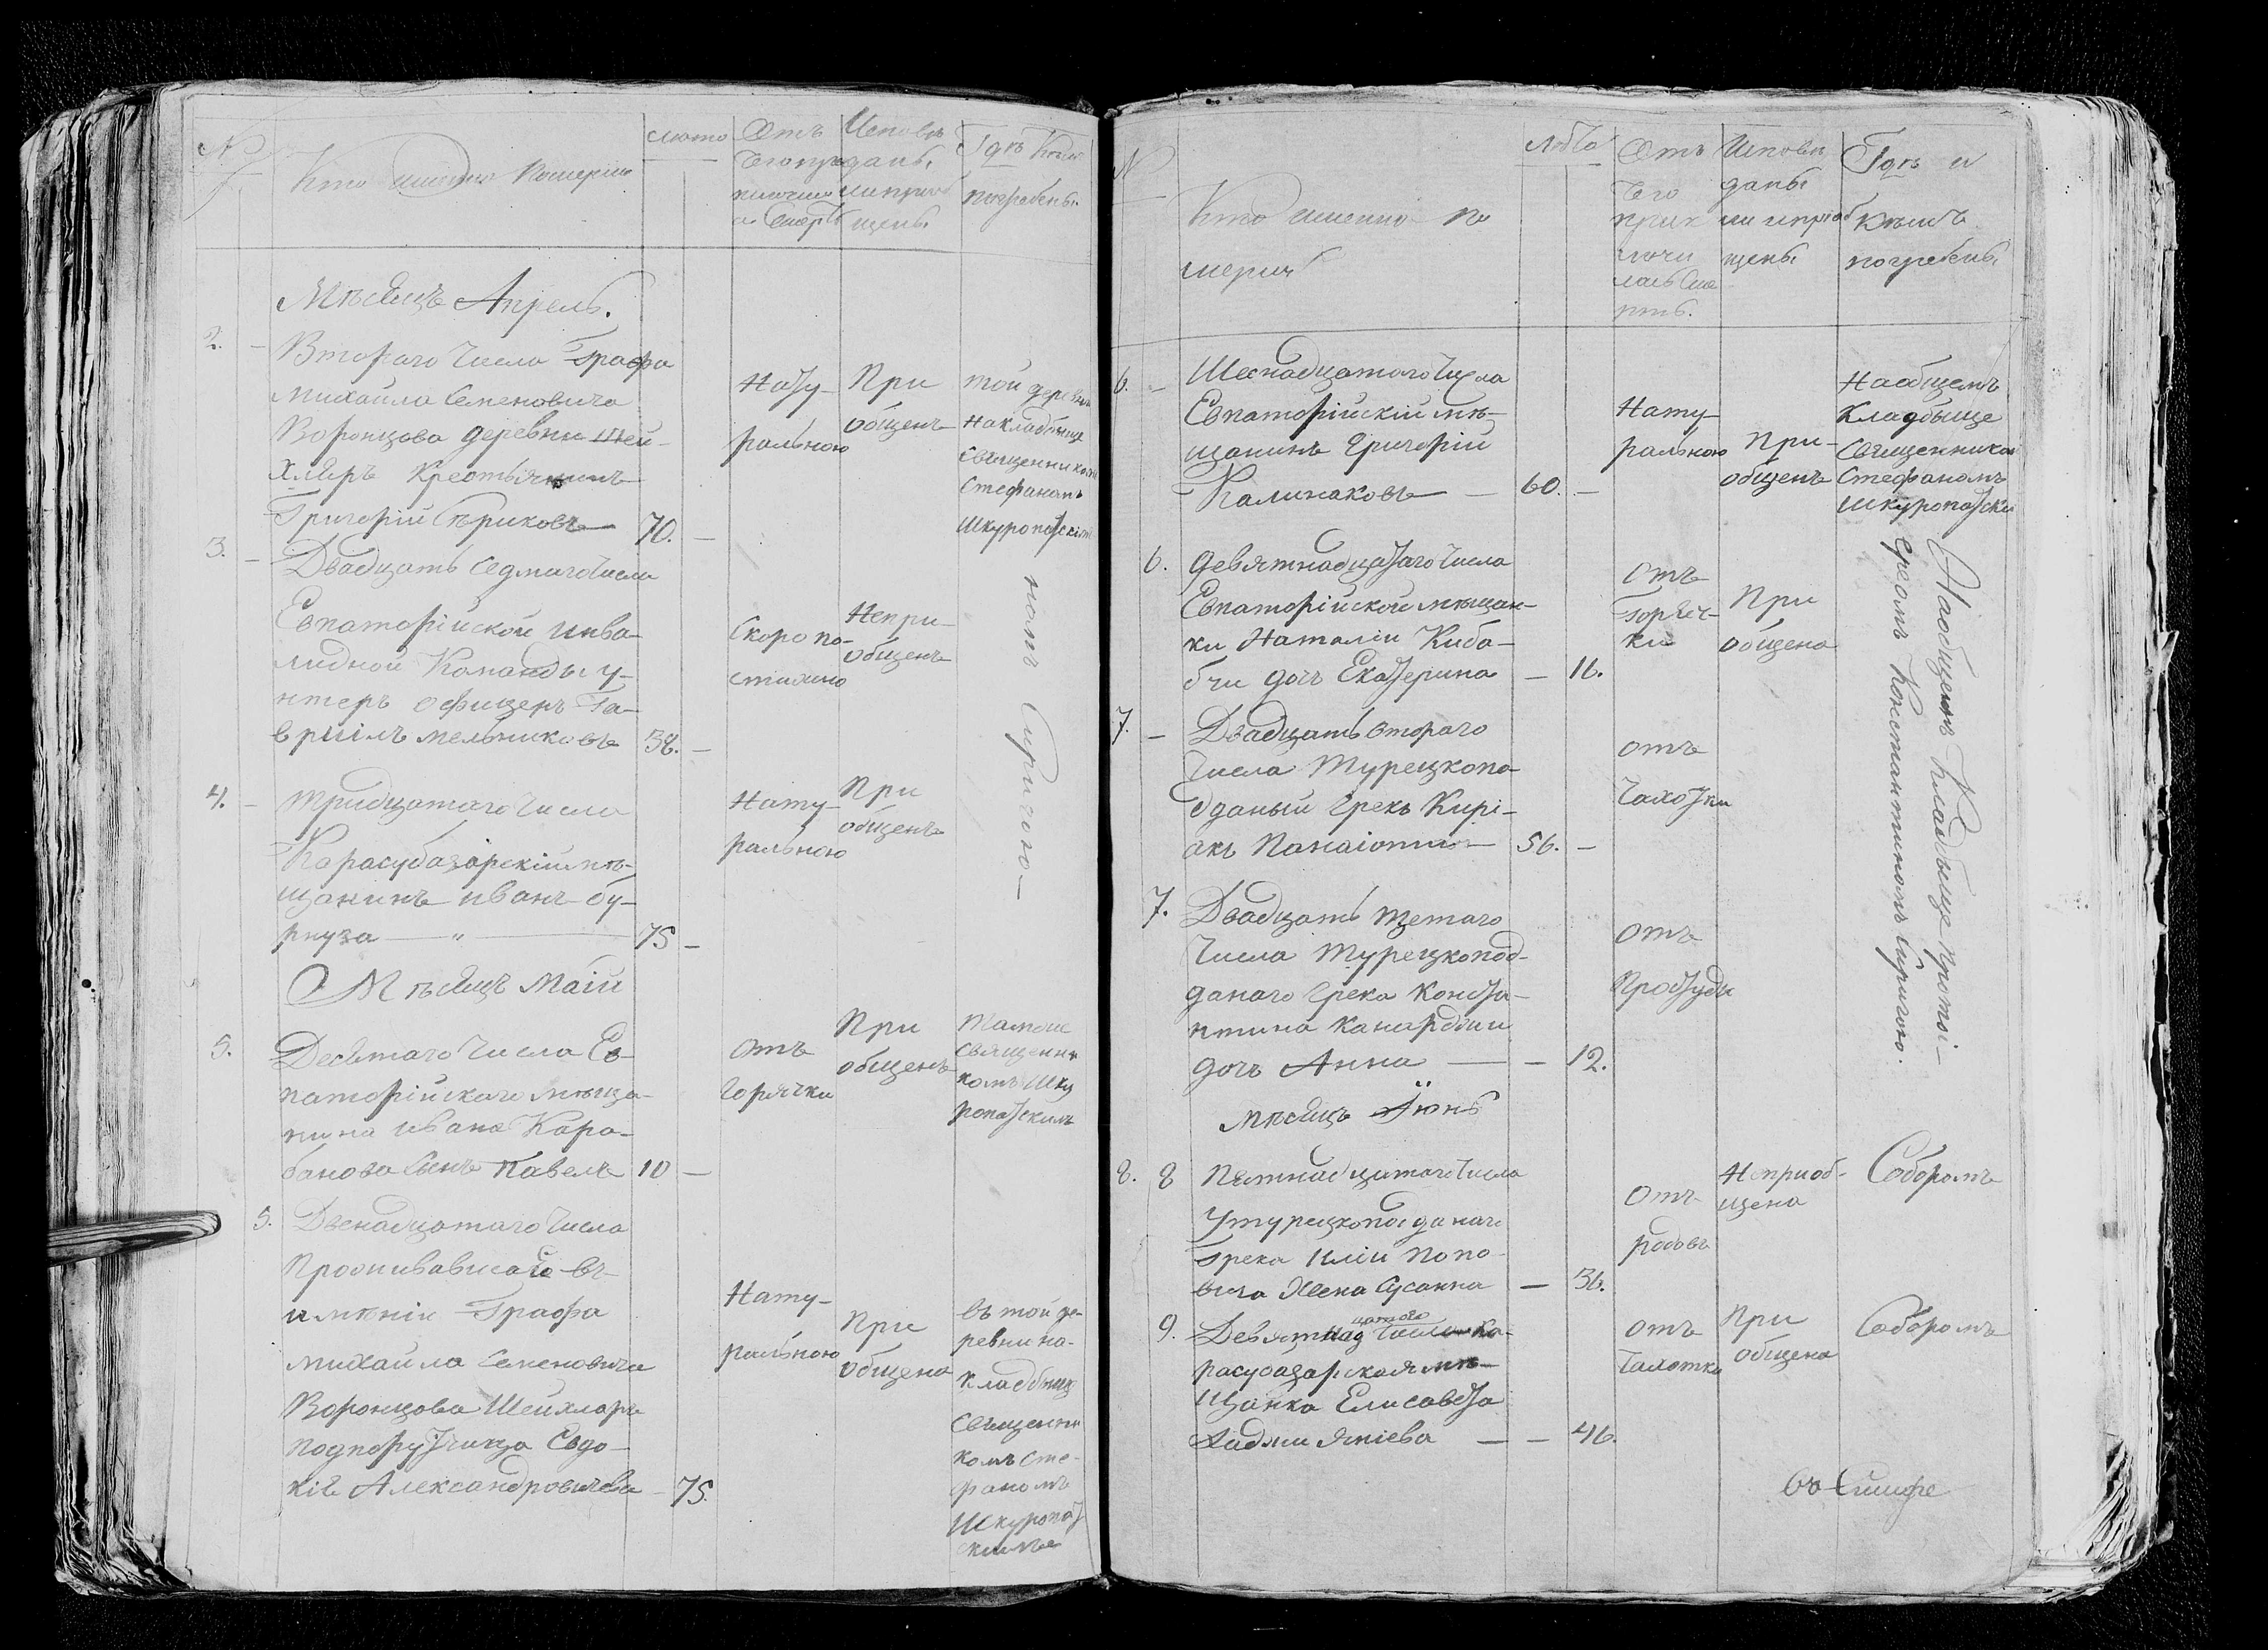 №
Кто именно Померши
Лета
Отъ
чего при
ключил
ась Смерть
Исповѣ
даны
и приоб
щены
Гдѣ Кем
погребены
Мѣсяцъ Апрель.
2.
Втораго Числа Графа
Михайла Семеновича
Воронцова деревни Шей-
хларъ Крестьянинъ
Григорій
70.
Нату-
ральною
При
общенъ
той деревни
На кладбище
Священником
Стефаномъ
Шкуропатскимъ
3.
Двадцать Седмаго Числа
Евпаторійской инва-
лидной Команды у-
нтеръ офицеръ Га-
вріилъ мельниковъ
38.
Скоропо-
стижно
Непри-
общенъ
номъ Сиригою
4.
тридцатаго Числа
Карасубазарскій мѣ-
щанинъ иванъ бу-
рнуза
75
Нату-
ральною
При
общенъ
Мѣсяцъ Маій
5.
Десятаго Числа Ев-
паторійскаго мѣща-
нина ивана Кара-
банова Сынъ Павелъ
10
отъ
Горячки
При
общенъ
Тамже
Священни
комъ Шку
ропатскимъ
5.
Двенадцатаго Числа
Проживавшаго въ
имѣніи Графа
Михайла Семеновича
Воронцова Шейхларъ
подпорутчица Евдо-
кія Александровичева
75.
Нату-
ральною
При
общена
въ той де-
ревни на-
кладбище
Священни
комъ Сте-
фаномъ
Шкуропат
скимъ
№
Кто именно по
мерли
Лета
Отъ
чего
прик
лючи
лась Сме
рть.
Исповѣ
даны
и приоб
щены
Гдѣ и
Кѣмъ
погребены
6.
Шеснадцатаго Числа
Евпаторійскій мѣ-
щанинъ Григорій
Калинаковъ
60.
Нату-
ральною
При-
общенъ
На общемъ
Кладбище
Священником
Стефаномъ
Шкуропатски
6.
девятнадцатаго Числа
Евпаторійской мѣщан-
ки Наталіи Киба-
бчи дочь Екатерина
16.
отъ
Горяч-
ки
При
общена
На общемъ Кладбище протоі-
ереомъ Константиномъ Сиригою.
7.
Двадцать втораго
Числа Турецкопо-
дданый Грекъ Кирі-
акъ
56.
отъ
Чахотки
7.
Двадцать третаго
Числа Турецкопод-
данаго Грека Конста-
нтина
дочь Анна
12.
отъ
Простуды
мѣсяцъ Іюнь
8. 8
Пятнадцатаго Числа
У турецкоподданаго
Грека Иліи Попо-
вича Жена Сусанна
36.
отъ
родовъ
Неприоб-
щена
Соборомъ
9.
Девятнад цатаго Числа Ка-
расубазарская мѣ-
щанка Елисавета
46.
отъ
Чахотки
При
общена
Соборомъ